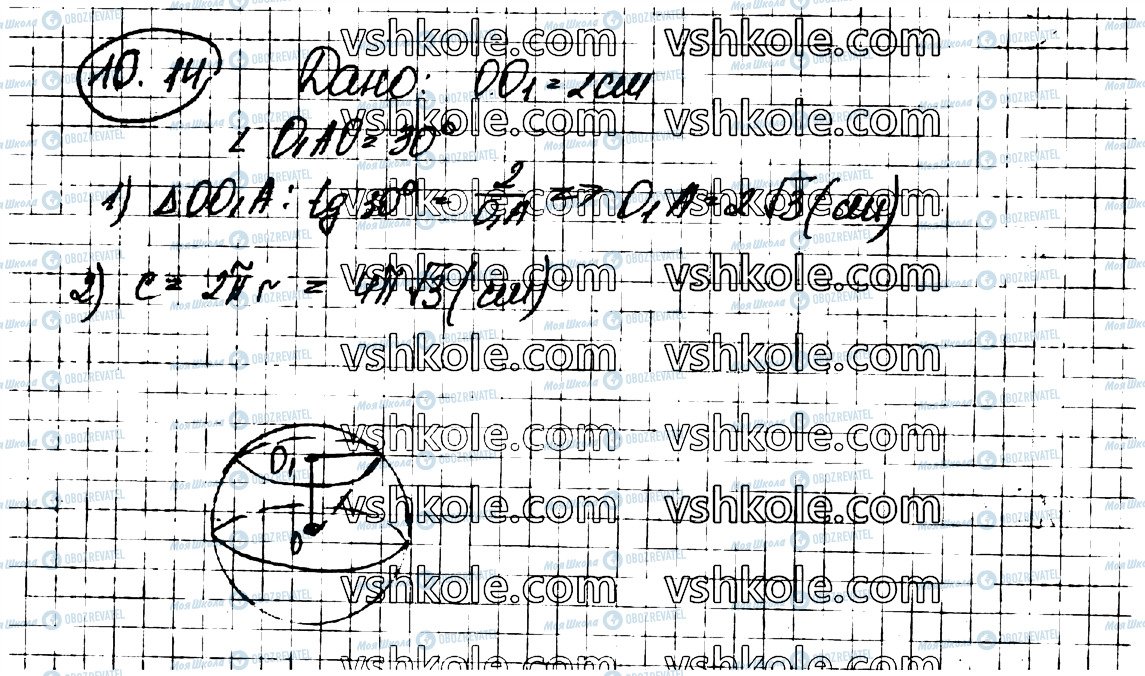 10.14 Дано: OO₁ = 2 см
∠ O₁AO = 30°
1) △ OO₁A : tg 30° = 2/O₁A => O₁A = 2√3 (см)
2) c = 2πr = 4π√3 (см)
O₁
O
vshkole.com vshkole.com
vshkole.com vshkole.com
vshkole.com vshkole.com
vshkole.com vshkole.com
vshkole.com vshkole.com
vshkole.com vshkole.com
vshkole.com vshkole.com
vshkole.com vshkole.com
vshkole.com vshkole.com
Моя Школа OBOZREVATEL